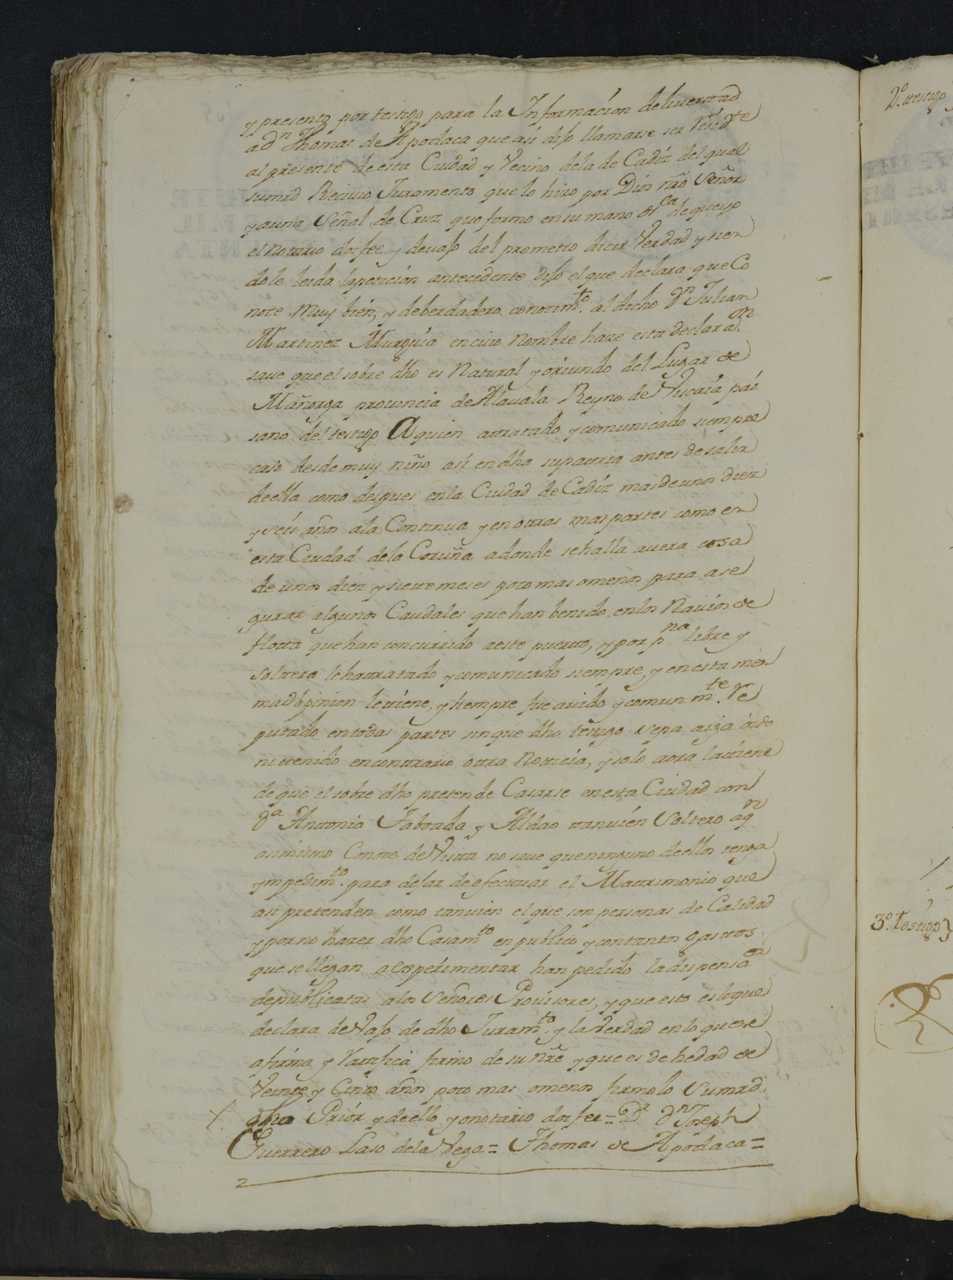 y presento por testigo para la Informacion de livertad
a Dn Thomas de Apodaca que así dijo llamarse ser
al presente de esta Ciudad y Vecino de la de Cadiz del qual
su md Recivio Juramento que lo hizo por Dios nro Señor
y a una Señal de Cruz que formo en su mano dra de que yo
el Notario doi fee y devajo del prometio dicir Verdad y sien
dole leida la peticion antecedente dijo el que declara que Co
noce muy bien, y de berdadero conozimto. al dicho Dn Julian
Martinez Murguia en cuio Nombre hace esta declaraon
save que el sobre dho es Natural y oriundo del Lugar de
Mañorga provincia de Alava la Reyno de Viscaia pai
sano del testigo A quien atratado y comunicado siempre
casi desde muy niño asi en dha su patria antes de salir
de ella como despues en la Ciudad de Cadiz mas de unos diez
y seis años a la Continua y en otras mas partes como en
esta Ciudad de la Coruña a donde se halla avera cosa
de unos diez y siete meses poco mas o menos para ase
gurar algunos Caudales que han benido en los Navios de
flota que han concurrido a este puerto, y por pna libre y
soltera le ha tratado y comunicado siempre, y en esta mis
ma opinion le tiene, y siempre fue avido y comunmte Re
putado en todas partes sin que dho testigo sepa aiga oido
ni tenido en contrario otra Noticia, y solo aora la tiene
de que el sobre dho pretende Casarse en esta Ciudad con
Da Antonia Tabrada y Aldao tanvien Soltera a qn
asimismo Conoce de Vista no save que ninguno de ellos tenga
ympedimto. para dejar de efectuar el Matrimonio que
asi pretenden como tanvien el que son personas de Calidad
y por no hazer dho Casamto en publico y con tantos gastos
que se llegan a esperimentar han pedido la dispensaon
de publicatas a los Señores Provisores, y que esto es lo que
declara devajo de dho Juramto. y la verdad en lo que se
afirma y Ratifica firmo de su nre y que es de hedad de
Veinte y Cinco años poco mas o menos firmolo su md
dho Prior y de ello yo notario doi fee = Dr. dn Joseph
Guerrero Laso de la Vega = Thomas de Apodaca =
2
2o. testigo
3o. testigo